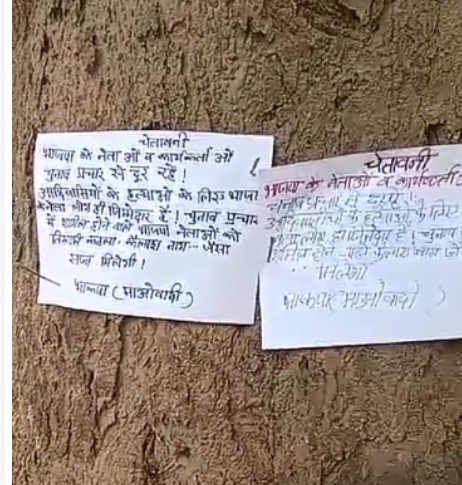 चेतावनी
भाजपा के नेता ओं व कार्यकर्ता ओं
चुनाव प्रचार से दूर रहें !
आदिवासियों के हत्याओं के लिए भाजपा
के नेता लोग ही जिम्मेदार है ! चुनाव प्रचार
में शामिल होने वाले भाजपा नेताओं को
कैलाश नाग... जैसा
सजा मिलेगी !
भाकपा (माओवादी)
चेतावनी
भाजपा के नेताओं व कार्यकर्ता
चुनाव प्रचार से
के हत्याओं के लिए
है ! चुनाव
होने वाले
मिलेगी
भाकपा (माओवादी)